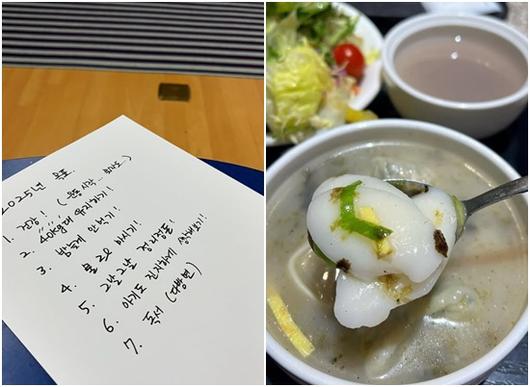 2025년 목표.
1. 건강! (운동 시작... 하자도..)
2. 40kg대 유지하기!
3. 밤늦게 안먹기!
4. 물 2L 마시기!
5. 그날그날 정리정돈!
6. 아기도 진지하게 생각해보기!
7. 독서 (다방면)